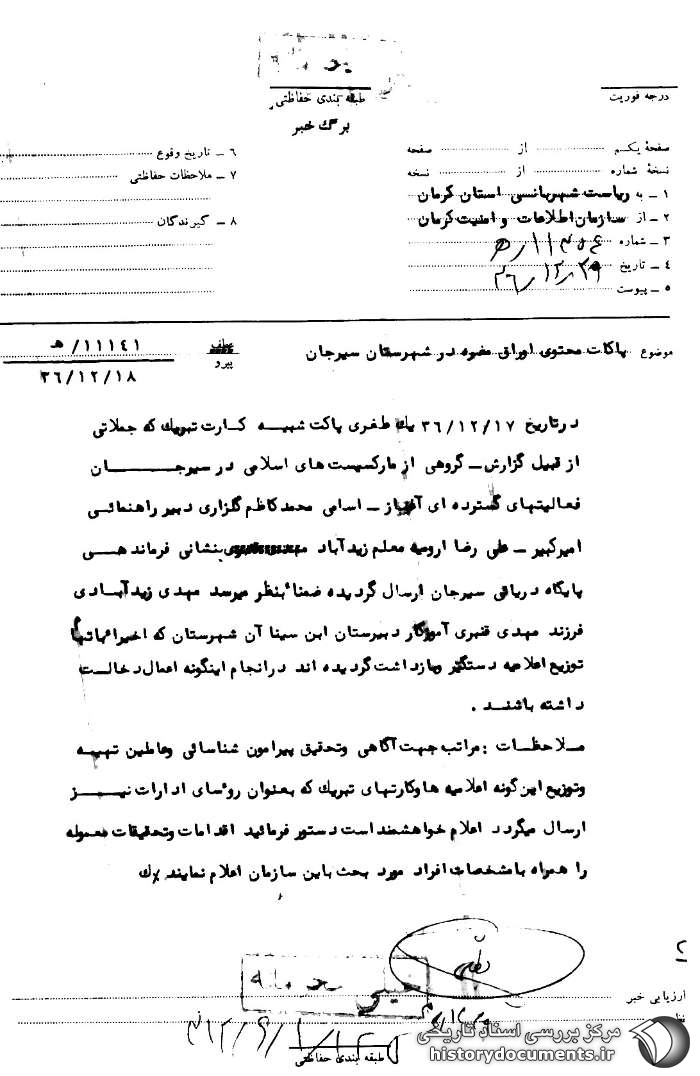 طبقه بندی حفاظتی
درجه فوریت
برگ خبر
صفحهٔ یکم از صفحه
نسخهٔ شماره از نسخه
۱ ـ به ریاست شهربانی استان کرمان
۲ ـ از سازمان اطلاعات و امنیت کرمان
۳ ـ شماره
۴ ـ تاریخ ۳۶/۱۲/۲۹
۵ ـ پیوست
۶ ـ تاریخ وقوع
۷ ـ ملاحظات حفاظتی
۸ ـ گیرندگان
موضوع پاکات محتوی اوراق مضره در شهرستان سیرجان
عطف پیرو
۱۱۱۴۱/ هـ
۳۶/۱۲/۱۸
در تاریخ ۳۶/۱۲/۱۷ یک طغری پاکت شبیه کارت تبریک که جملاتی
از قبیل گزارش ـ گروهی از مارکسیست های اسلامی در سیرجان
فعالیتهای گسترده ای آغاز ـ اسامی محمدکاظم گلزاری دبیر راهنمائی
امیرکبیر ـ علی رضا ارومیه معلم زیدآباد بنشانی فرماندهی
پایگاه دریائی سیرجان ارسال گردیده ضمناً بنظر میرسد مهدی زیدآبادی
فرزند مهدی قنبری آموزگار دبیرستان ابن سینا آن شهرستان که اخیرا باتهام
توزیع اعلامیه دستگیر وبازداشت گردیده اند در انجام اینگونه اعمال دخالت
داشته باشند .
ملاحظات : مراتب جهت آگاهی وتحقیق پیرامون شناسائی وعاملین تهیه
وتوزیع این گونه اعلامیه هاوکارتهای تبریک که بعنوان روٴسای ادارات نیز
ارسال میگردد اعلام خواهشمند است دستور فرمائید اقدامات وتحقیقات معموله
را همراه با مشخصات افراد مورد بحث باین سازمان اعلام نمایند
ارزیابی خبر
خیلی محرمانه
طبقه بندی حفاظتی
مرکز بررسی اسناد تاریخی
historydocuments.ir